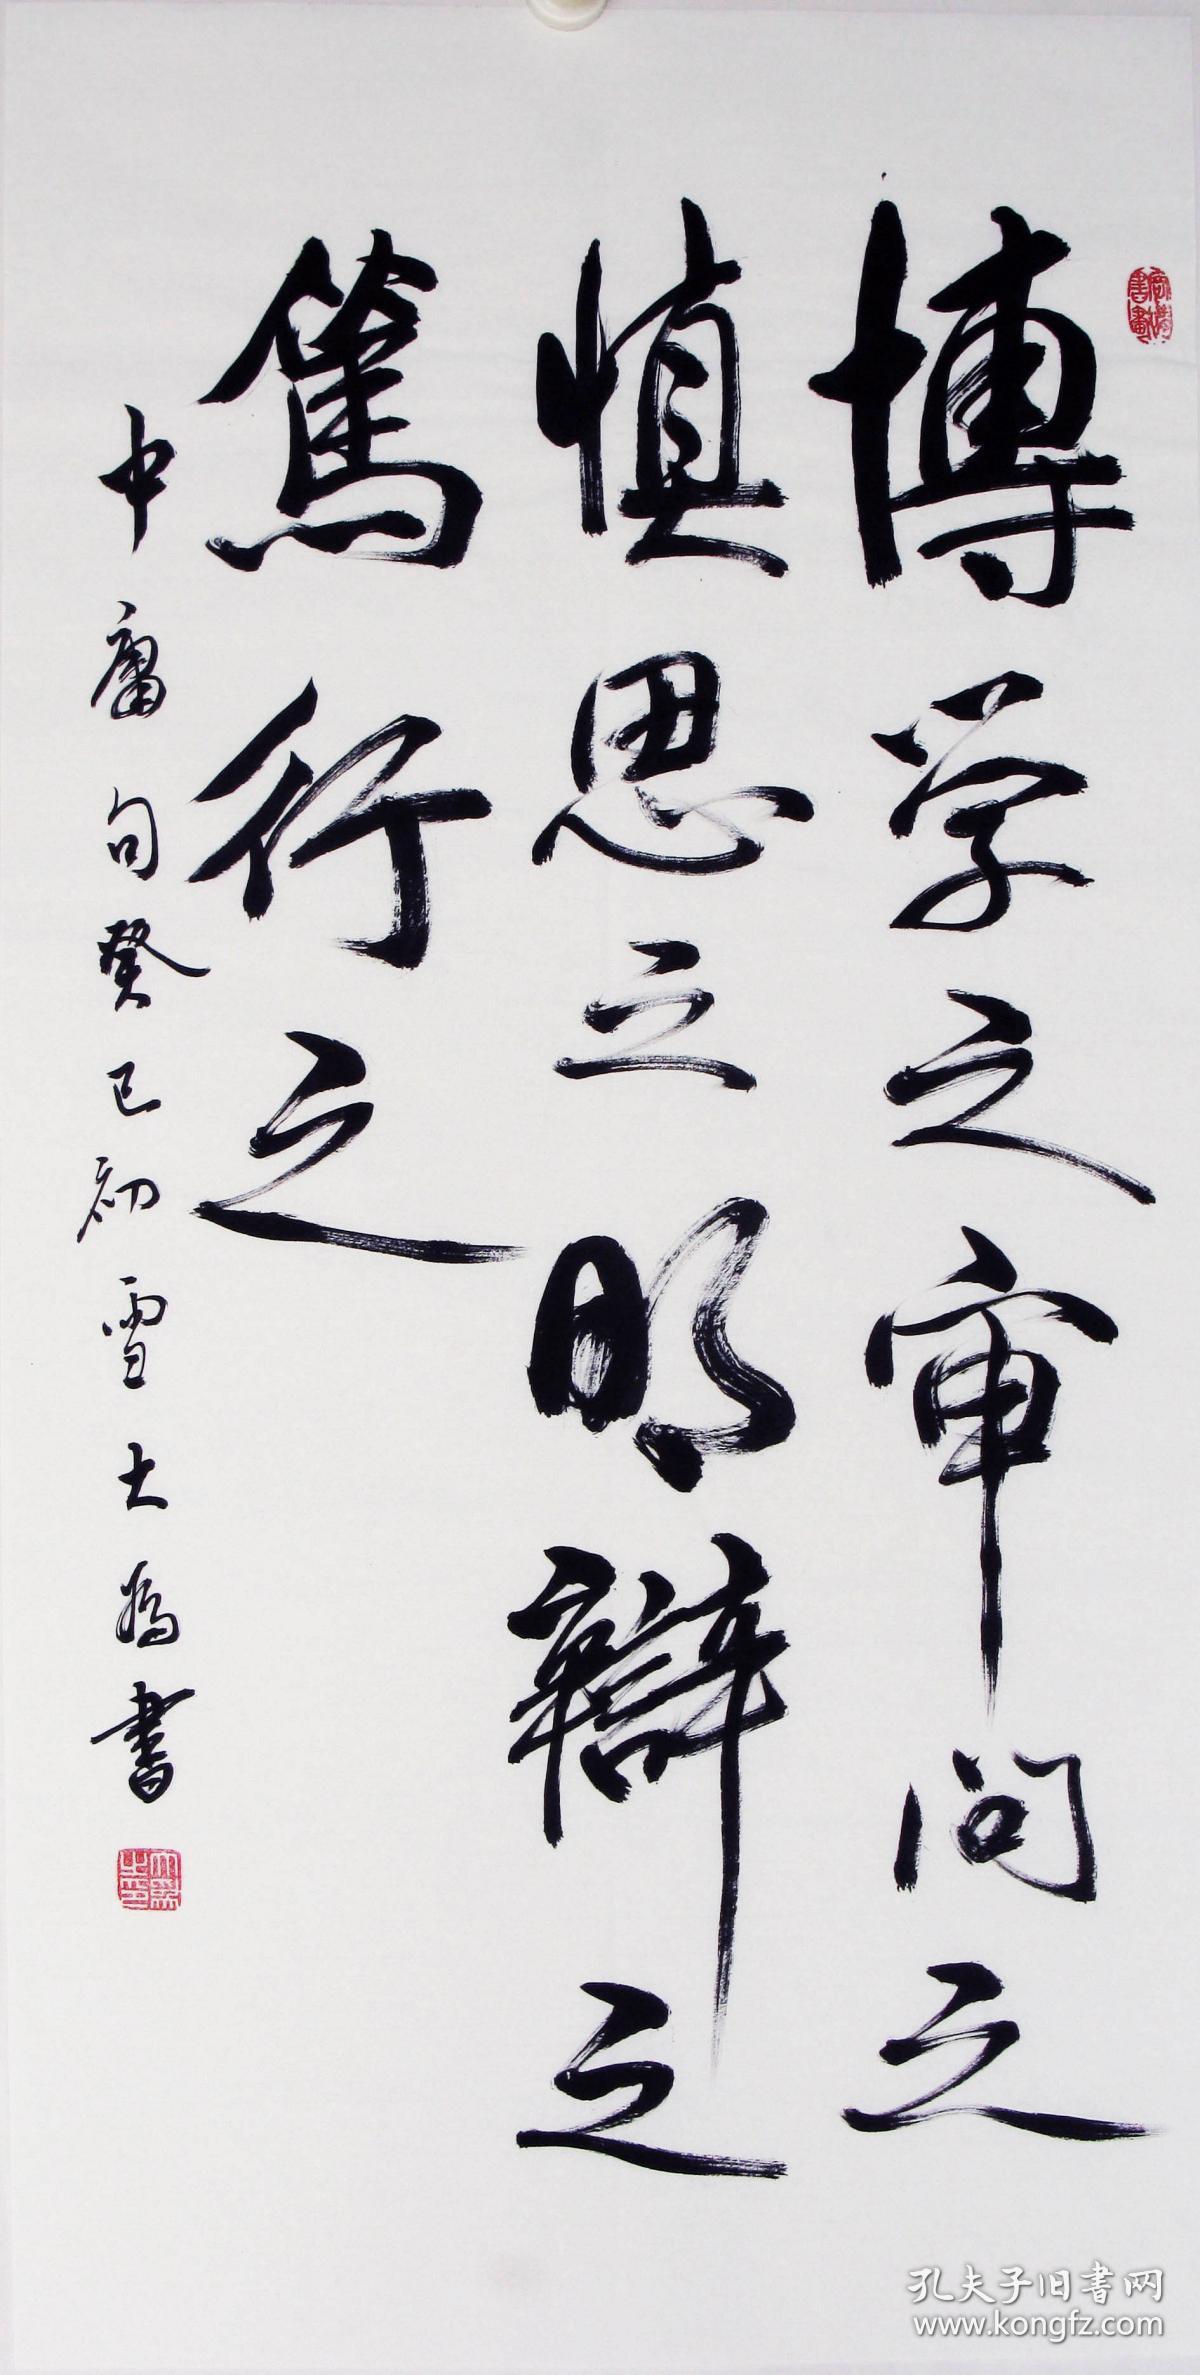 博学之审问之
慎思之明辩之
篤行之
中庸句癸巳初雪大為書
孔夫子旧書网
www.kongfz.com